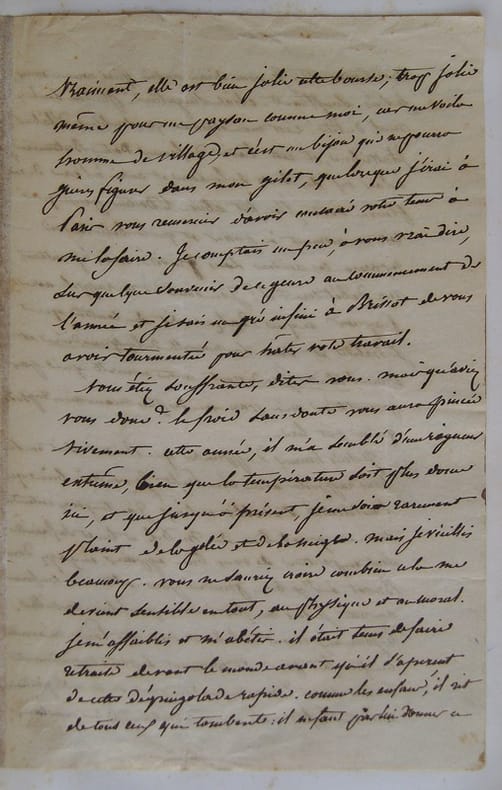 Vraiment, elle est bien jolie cette bourse; trop jolie
même pour un paysan comme moi, car me voilà
homme de village, et c'est un bijou qui ne pourra
guère figurer dans mon gilet, que lorsque j'irai à
Paris vous remercier d'avoir consacré votre tems à
me la faire. Je comptais un peu, à vous vrai dire,
sur quelque souvenir de ce genre au commencement de
l'année et je sais un gré infini à Brissot de vous
avoir tourmentée pour hâter votre travail.
Vous étiez souffrante, dites vous. mais qu'aviez
vous donc? le froid sans doute vous aura pincée
vivement. cette année, il m'a semblé d'une rigueur
extrême, bien que la température soit plus douce
ici, et que jusqu'à présent, je me sois rarement
plaint de la gelée et de la neige. mais je vieillis
beaucoup. vous ne sauriez croire combien cela me
devient sensible en tout, au physique et au moral.
je m'affaiblis et m'abêtis. il était tems de faire
retraite devant le monde avant qu'il s'aperçut
de cette dégringolade rapide. comme les enfans, il rit
de tous ceux qui tombent: il en faut donner